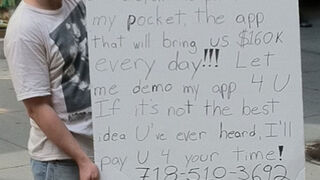 my pocket, the app
that will bring us $160K
every day!!! Let
me demo my app 4 U
If it's not the best
idea U've ever heard, I'll
pay U 4 your time!
718-510-3692